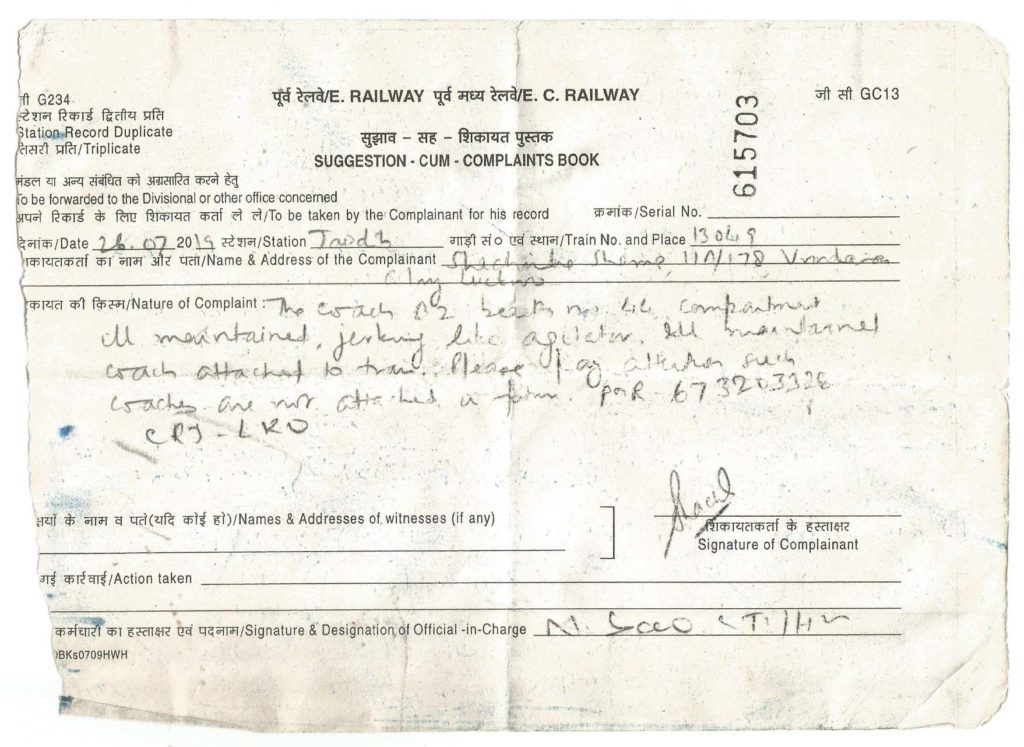 जी G234
स्टेशन रिकार्ड द्वितीय प्रति
Station Record Duplicate
तिसरी प्रति/Triplicate
पूर्व रेलवे/E. RAILWAY पूर्व मध्य रेलवे/E. C. RAILWAY
जी सी GC13
सुझाव - सह - शिकायत पुस्तक
SUGGESTION - CUM - COMPLAINTS BOOK
615703
मंडल या अन्य संबंधित को अग्रसारित करने हेतु
To be forwarded to the Divisional or other office concerned
अपने रिकार्ड के लिए शिकायत कर्ता ले ले/To be taken by the Complainant for his record क्रमांक/Serial No.
दिनांक/Date 26.07 2019 स्टेशन/Station गाड़ी सं० एवं स्थान/Train No. and Place 13049
शिकायतकर्ता का नाम और पता/Name & Address of the Complainant 11A/178
शिकायत की किस्म/Nature of Complaint : The coach no. 44 compartment
ill maintained, jerking like agitator. Ill maintained
coach attached to train. Please pay attention such
coaches are not attached in future. PNR - 673203328
- LKO
के नाम व पते(यदि कोई हो)/Names & Addresses of witnesses (if any)
शिकायतकर्ता के हस्ताक्षर
Signature of Complainant
गई कार्रवाई/Action taken
कर्मचारी का हस्ताक्षर एवं पदनाम/Signature & Designation of Official -in-Charge
BKs0709HWH